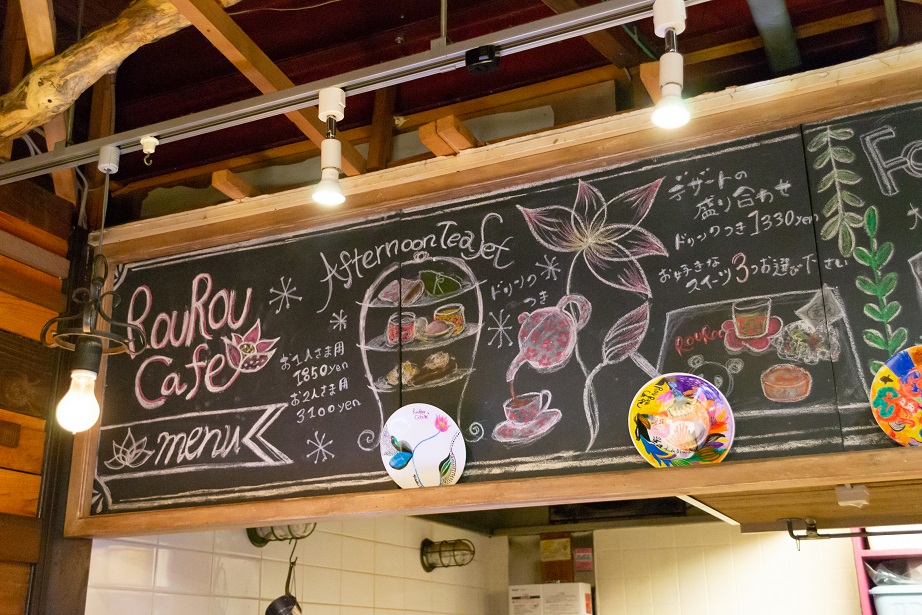 RouRou
Cafe
menu
Afternoon Tea Set
お1人さま用
1850yen
お2人さま用
3100yen
ドリンクの
つき
デザートの
盛り合わせ
ドリンクつき1330yen
お好きな
スイーツ3つお選び下さい